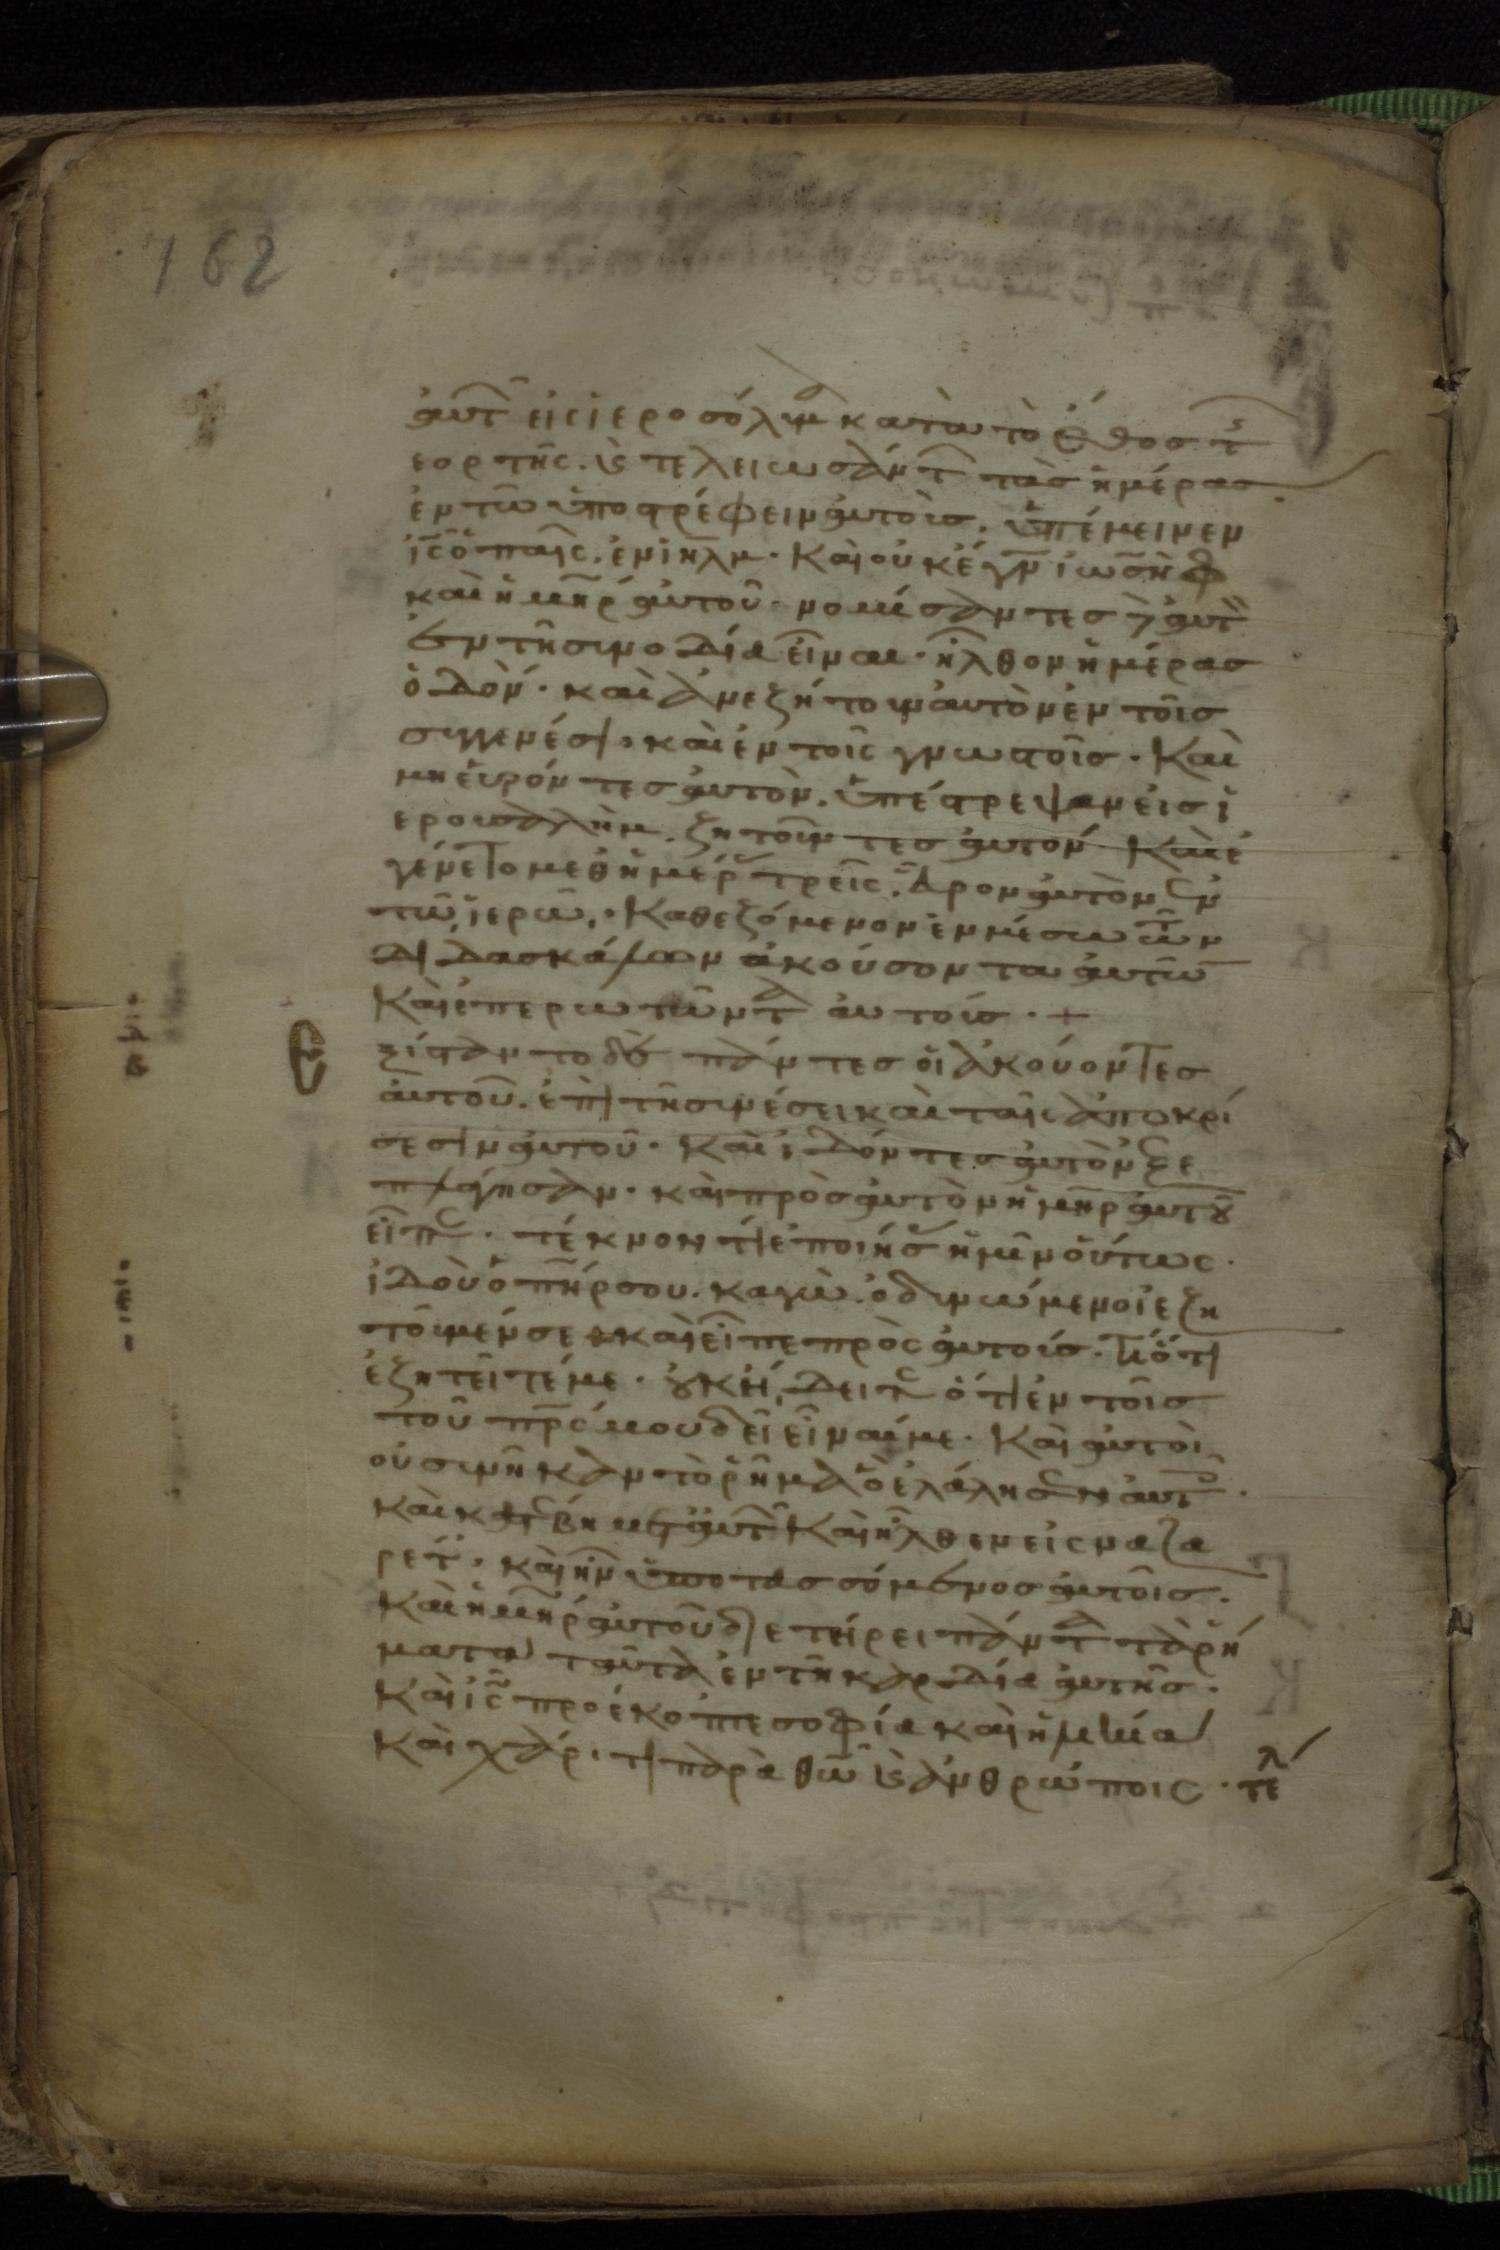 162
αὐτῶν εἰς ἱεροσόλυμα κατὰ τὸ ἔθος τῆς
εορτῆς. καὶ τελειωσάντων τὰς ἡμέρας
ἐν τῶ ὑποστρέφειν αὐτοὺς. ὑπέμεινεν
ἰς ὁ παῖς. ἐν ιηλμ. Καὶ οὐκ ἔγνω ἰωσὴφ
καὶ ἡ μηρ αὐτοῦ. νομίσαντες αὐτὸν
ἐν τῆ συνοδία εἶναι. ἦλθον ἡμέρας
ὁδὸν. καὶ ἀνεζήτουν αὐτὸν ἐν τοῖς
συγγενέσι. καὶ ἐν τοῖς γνωστοῖς. Καὶ
μὴ εὑρόντες αὐτὸν. ὑπέστρεψαν εἰς ἱ
ερουσαλὴμ. ζητοῦντες αὐτόν. Καὶ ἐ
γένετο μεθ ἡμέρας τρεῖς. εὗρον αὐτὸν ἐν
τῶ ἱερῶ. Καθεζόμενον ἐν μέσω τῶν
διδασκάλων ἀκούοντα αὐτῶν
Καὶ ἐπερωτῶντα αὐτούς. +
ξίσταντο δὲ πάντες οἱ ἀκούοντες
αὐτοῦ. ἐπὶ τῆ συνέσει καὶ ταῖς ἀποκρί
σεσιν αὐτοῦ. Καὶ ἰδόντες αὐτὸν ἐξε
πλάγησαν. καὶ πρὸς αὐτὸν ἡ μηρ αὐτοῦ
εἶπεν. τέκνον τί ἐποίησας ἡμῖν οὕτως.
ἰδοὺ ὁ πηρ σου. καγὼ ὀδυνώμενοι ἐζη
τοῦμέν σε καὶ εἶπε πρὸς αὐτούς. Τί ὅτι
ἐζητεῖτέ με. οὐκ ἤδειτε ὅτι ἐν τοῖς
τοῦ πρς μου δεῖ εἶναί με. Καὶ αὐτοὶ
οὐ συνῆκαν τὸ ῥῆμα ὃ ἐλάλησεν αὐτοῖς.
καὶ κατέβη μετ αὐτῶν Καὶ ἦλθεν εἰς ναζα
ρέτ. καὶ ἦν ὑποτασσόμενος αὐτοῖς.
Καὶ ἡ μηρ αὐτοῦ διετήρει πάντα τὰ ῥή
ματα ταῦτα ἐν τῆ καρδία αὐτῆς.
Καὶ ις προέκοπτε σοφία καὶ ἡλικία
Καὶ χάριτι παρὰ θῶ καὶ ἀνθρώποις. τελ